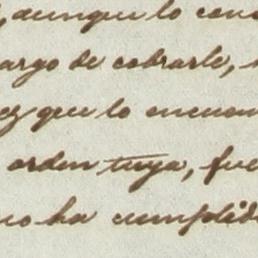 , aunque lo cono
argo de cobrarle,
ez que lo encuen
orden tuya, fue
no ha cumplido